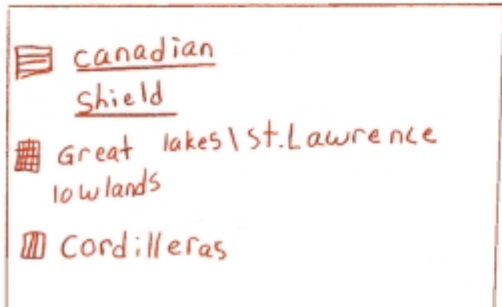 canadian
shield
Great lakes\St.Lawrence
lowlands
Cordilleras